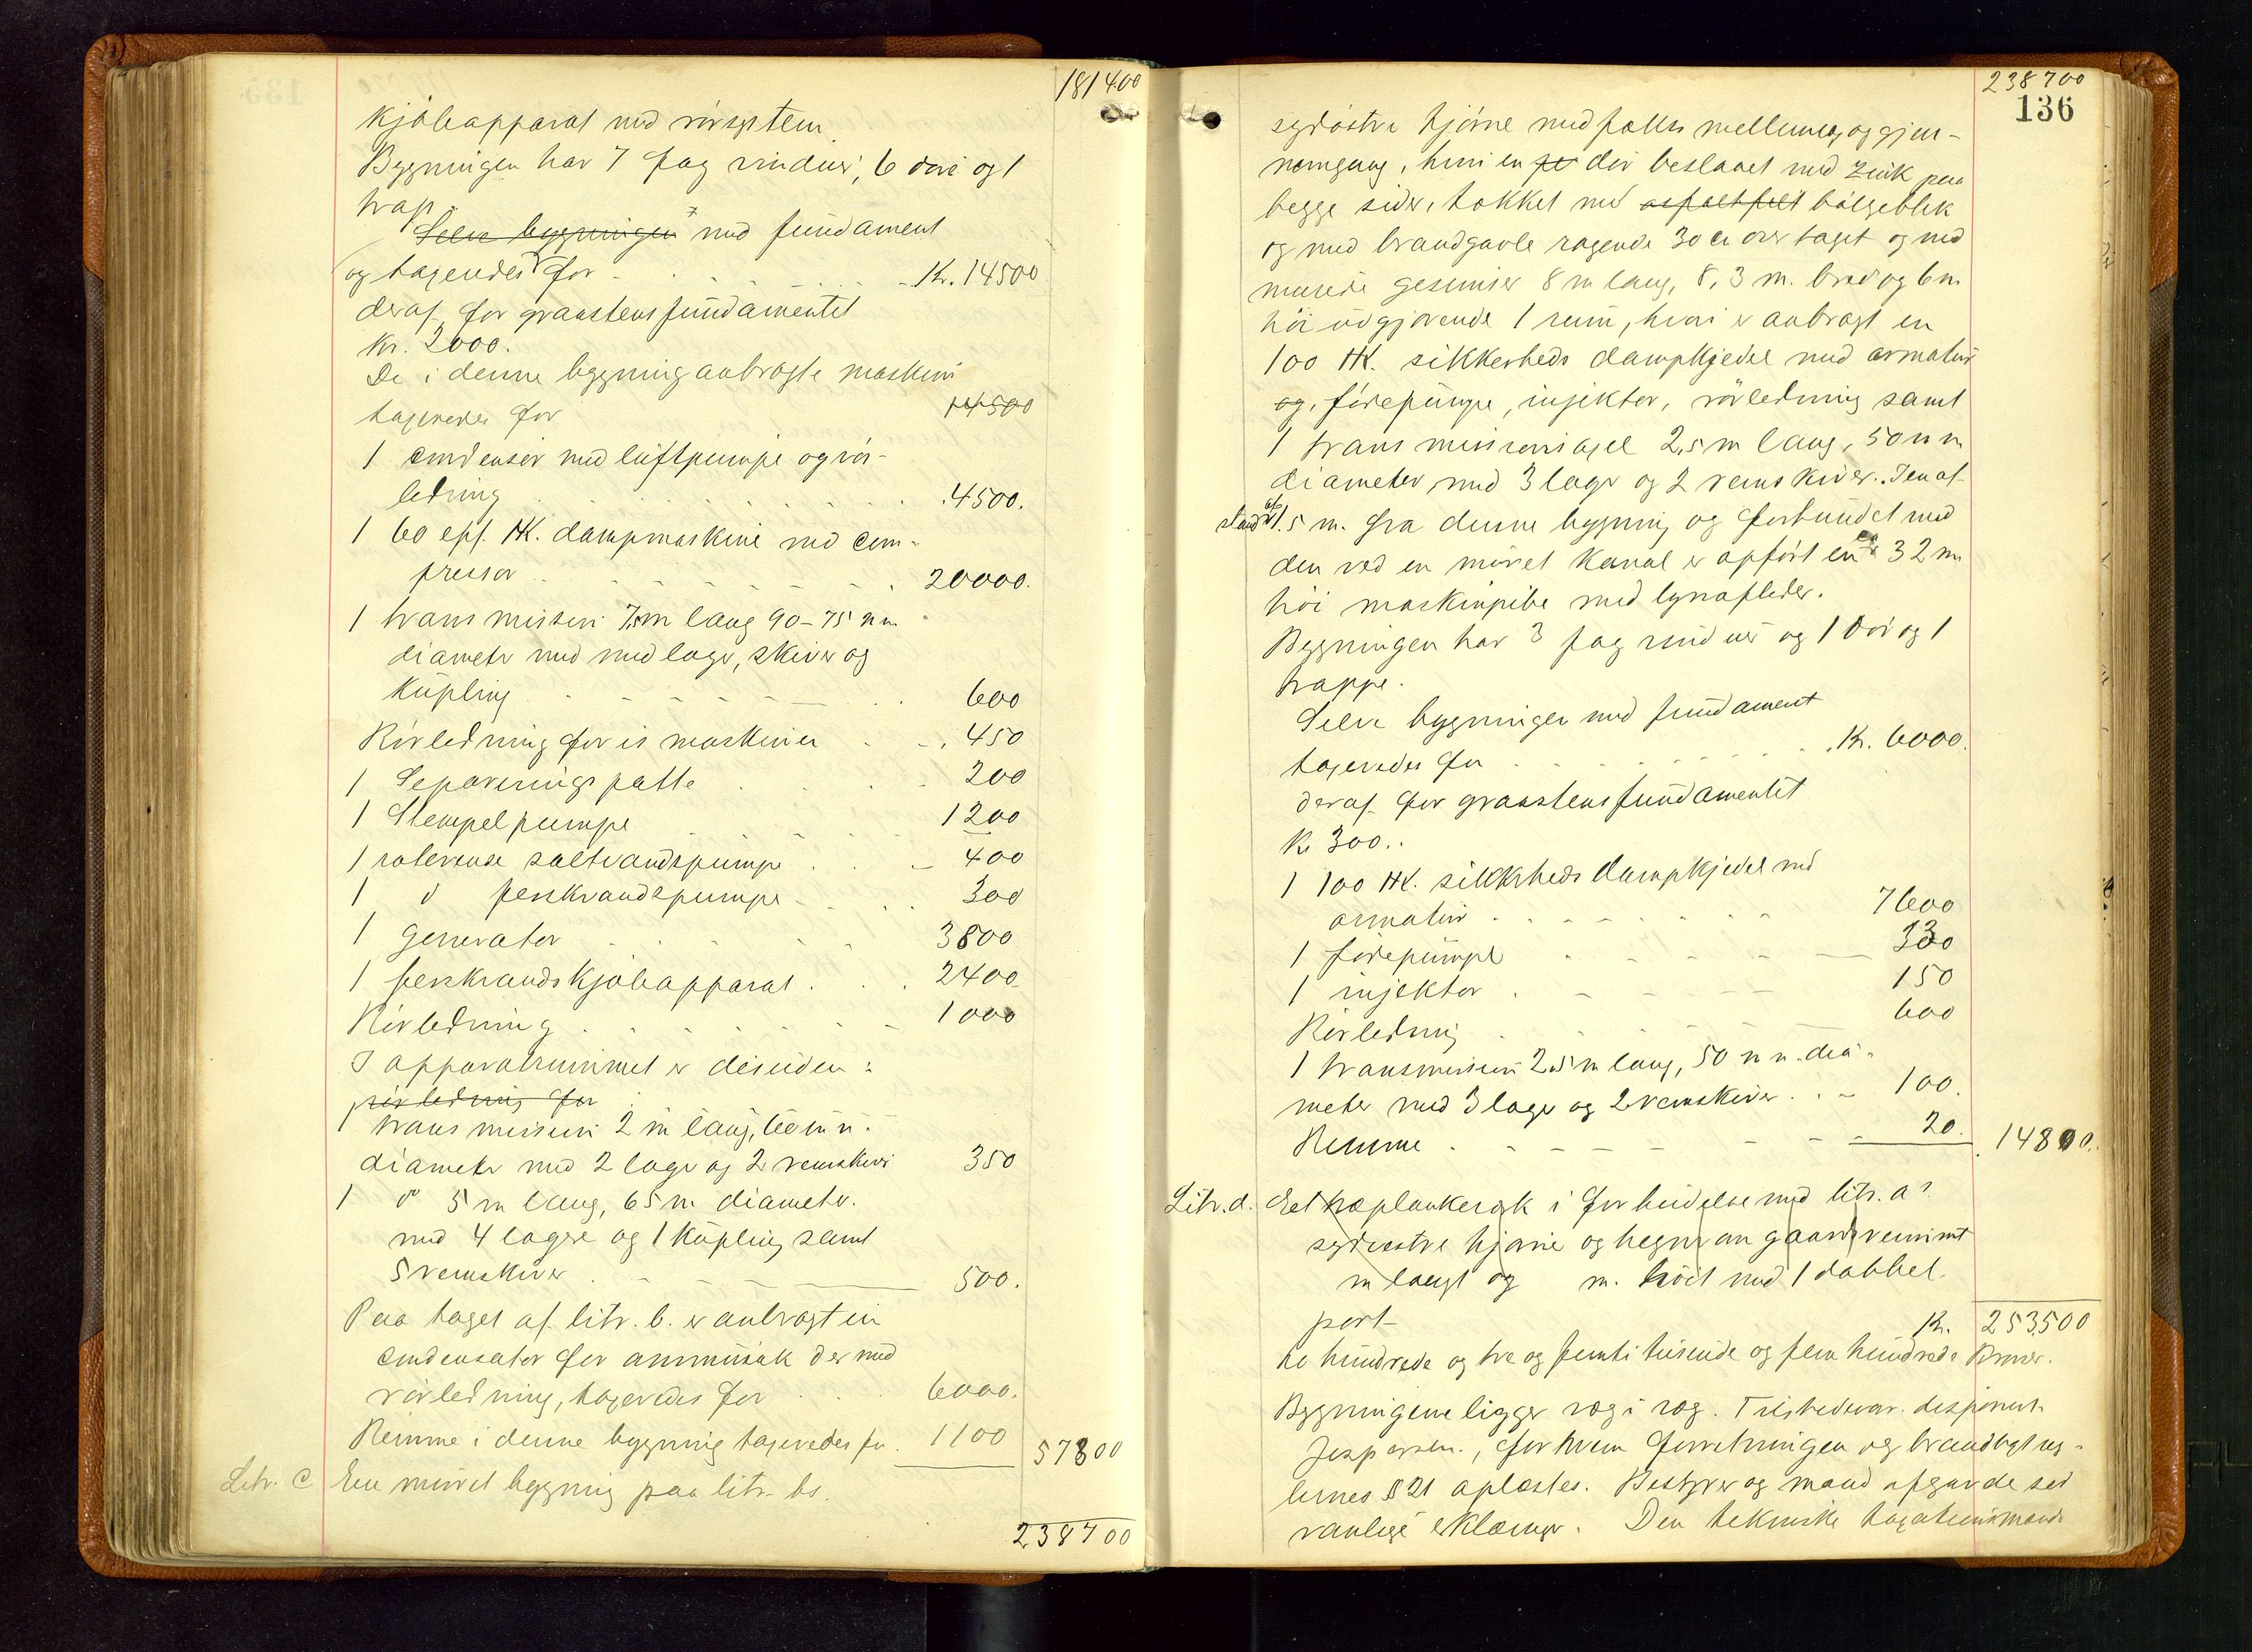 181400
kjøleapparat med rørsystem
Bygningen har 7 fag vinduer, 6 døre og 1
trap.
Selve bygningen med fundament
og taxeredes for - Kr. 14500
deraf for graastensfundamentet
Kr. 2000.
De i denne bygning anbragte maskiner
taxeredes for 14500
1 condensor med luftpumpe og rør-
ledning 4500.
1 60 eff. HK. dampmaskine med com-
pressor 20000.
1 transmission 7,5m lang 90-75 mm
diameter med lager, skiver og
kupling 600
Rørledning for is maskinen 450
1 Separerings patte 200
1 Stempelpumpe 1200
1 roterende saltvandspumpe 400
1 do ferskvandspumpe 300
1 generator 3800
1 ferskvandskjøleapparat 2400
Rørledning 1000
I apparatrummet er desuden:
rørledning for
1 transmission 2 m lang, 60 mm
diameter med 2 lager og 2 remskiver 350
1 do 5 m lang, 65 m. diameter.
med 4 lagere og 1 kupling samt
5 remskiver 500.
Paa taget af litr. b. er anbragt en
condensator for ammoniak der med
rørledning, taxeredes for 6000.
Remme i denne bygning taxeredes for 1100 57300
Litr. C En muret bygning paa litr. bs.
238700
238700
136
sydøstre hjørne med fælles mellemvæg og gjen-
nemgang, hvori en dør beslaaet med zink paa
begge sider, tækket med asfaltfilt bølgeblik
og med brandgavle ragende 30 cm over taget og med
murede gesimser 8 m lang, 8,3 m. bred og 6 m.
høi udgjørende 1 rum, hvori er anbragt en
100 HK. sikkerheds dampkjedel med armatur
og, fødepumpe, injektor, rørledning samt
1 transmissionsaxel 2,5 m lang, 50 mm
diameter med 3 lager og 2 remskiver. I en af-
stand af 1.5 m. fra denne bygning og forbundet med
den ved en muret kanal er opført en ca 32 m
høi maskinpibe med lynafleder.
Bygningen har 3 fag vinduer og 1 dør og 1
trappe.
Selve bygningen med fundament
taxeredes for Kr. 6000.
deraf for graastensfundamentet
Kr 300..
1 100 HK. sikkerheds dampkjedel med
armatur 7600
1 fødepumpe 330
1 injektor 150
Rørledning 600
1 transmission 2,5 m lang, 50 mm. dia-
meter med 3 lager og 2 remskiver 100.
Remme 20. 14800.
Litr. d. Et træplankeværk i forbindelse med litr. a's
sydvestre hjørne og hegner an gaardsrummet
m langt og m. høit med 1 dobbel.
port Kr. 253500
to hundrede og tre og femti tusinde og fem hundrede Kroner.
Bygningerne ligger væg i væg. Tilstedevar. disponent
Jespersen., for hvem forretningen og brandlovens-
lernes § 21 oplæstes. Bestyrer og mænd afgav de sed
vanlige erklæringer. Den tekniske taxationsmand